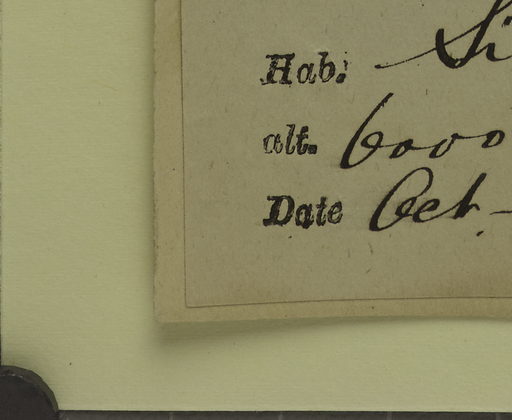 Hab: Si
alt. 6000
Date Oct-